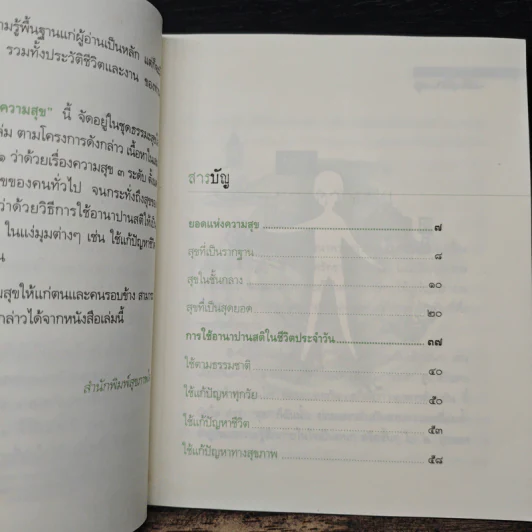 ามรู้พื้นฐานแก่ผู้อ่านเป็นหลัก
รวมทั้งประวัติชีวิตและงาน ของท่าน
ความสุข” นี้ จัดอยู่ในชุดธรรมะ
ล่ม ตามโครงการดังกล่าว เนื้อหาใน
๑ ว่าด้วยเรื่องความสุข ๓ ระดับ ตั้งแต่
ขของคนทั่วไป จนกระทั่งถึงสุขของ
ว่าด้วยวิธีการใช้อานาปานสติให้เป็น
ในแง่มุมต่างๆ เช่น ใช้แก้ปัญหาชีวิต
น
มสุขให้แก่ตนและคนรอบข้าง สามารถ
กล่าวได้จากหนังสือเล่มนี้
สำนักพิมพ์สุขภาพ
สารบัญ
ยอดแห่งความสุข ๗
สุขที่เป็นรากฐาน ๘
สุขในชั้นกลาง ๑๐
สุขที่เป็นสุดยอด ๒๐
การใช้อานาปานสติในชีวิตประจำวัน ๓๗
ใช้ตามธรรมชาติ ๔๐
ใช้แก้ปัญหาทุกวัย ๕๐
ใช้แก้ปัญหาชีวิต ๕๓
ใช้แก้ปัญหาทางสุขภาพ ๕๘